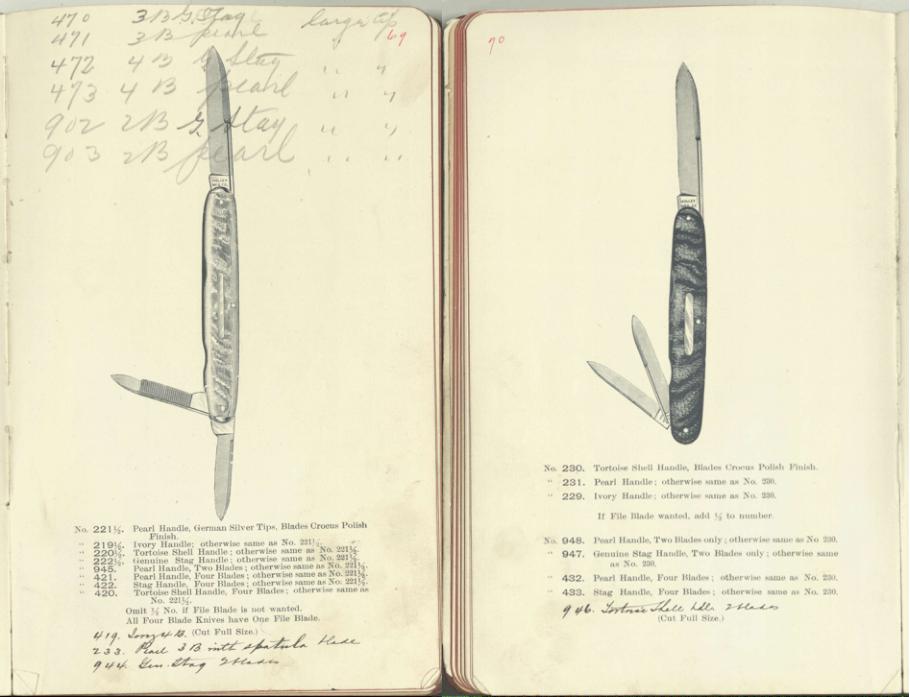 470 3 B G. Stag large tip
471 3 B pearl " "
69
472 4 B G Stag " "
473 4 B pearl " "
902 2 B G. Stag " "
903 2 B pearl " "
No. 221½. Pearl Handle, German Silver Tips, Blades Crocus Polish
Finish.
" 219½. Ivory Handle; otherwise same as No. 221½.
" 220½. Tortoise Shell Handle; otherwise same as No. 221½.
" 222½. Genuine Stag Handle; otherwise same as No. 221½.
" 945. Pearl Handle, Two Blades; otherwise same as No. 221½.
" 421. Pearl Handle, Four Blades; otherwise same as No. 221½.
" 422. Stag Handle, Four Blades; otherwise same as No. 221½.
" 420. Tortoise Shell Handle, Four Blades; otherwise same as
No. 221½.
Omit ½ No. if File Blade is not wanted.
All Four Blade Knives have One File Blade.
(Cut Full Size.)
419. Ivory 4 B.
233. Pearl 3 B with spatula blade
944. Gen. Stag 2 blades
70
No. 230. Tortoise Shell Handle, Blades Crocus Polish Finish.
" 231. Pearl Handle; otherwise same as No. 230.
" 229. Ivory Handle; otherwise same as No. 230.
If File Blade wanted, add ½ to number.
No. 948. Pearl Handle, Two Blades only; otherwise same as No 230.
" 947. Genuine Stag Handle, Two Blades only; otherwise same
as No. 230.
" 432. Pearl Handle, Four Blades; otherwise same as No. 230.
" 433. Stag Handle, Four Blades; otherwise same as No. 230.
946. Tortoise Shell hdle 2 blades
(Cut Full Size.)